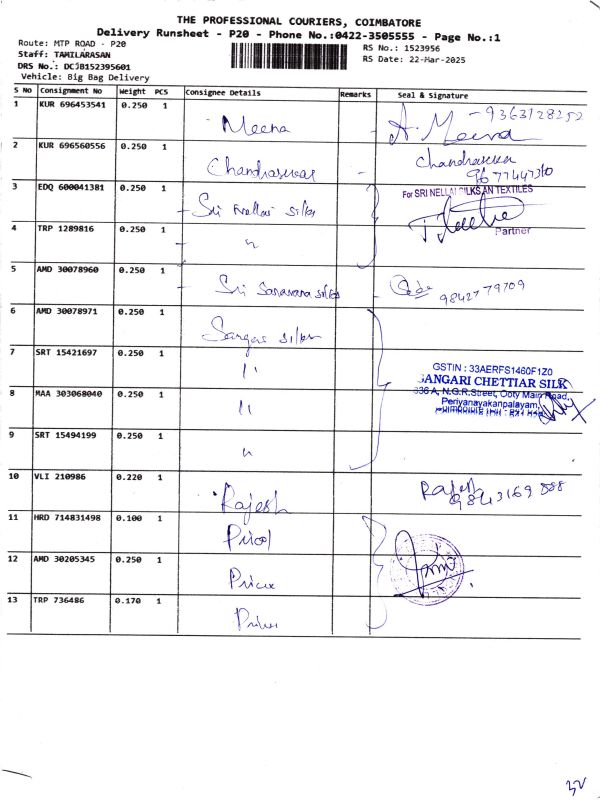 THE PROFESSIONAL COURIERS, COIMBATORE
Delivery Runsheet - P20 - Phone No.:0422-3505555 - Page No.:1
Route: MTP ROAD - P20
RS No.: 1523956
Staff: TAMILARASAN
RS Date: 22-Mar-2025
DRS No.: DCJB152395601
Vehicle: Big Bag Delivery
S No Consignment No Weight PCS Consignee Details Remarks Seal & Signature
1 KUR 696453541 0.250 1 Meena - 9363128252
A. Meena
2 KUR 696560556 0.250 1 Chandrasekar Chandrasekar
9677447310
3 EDQ 600041381 0.250 1 Sri Nellai Silks For SRI NELLAI SILKS AN TEXTILES
Partner
4 TRP 1289816 0.250 1 "
5 AMD 30078960 0.250 1 Sri Saravana silks 9842779709
6 AMD 30078971 0.250 1 silks
7 SRT 15421697 0.250 1 "
GSTIN : 33AERFS1460F1Z0
SANGARI CHETTIAR SILK
8 MAA 303068040 0.250 1 "
336 A, N.G.R.Street, Ooty Main Road,
Periyanayakanpalayam,
9 SRT 15494199 0.250 1 "
10 VLI 210986 0.220 1 Rajesh Rajesh
9843169888
11 HRD 714831498 0.100 1
12 AMD 30205345 0.250 1
13 TRP 736486 0.170 1
32